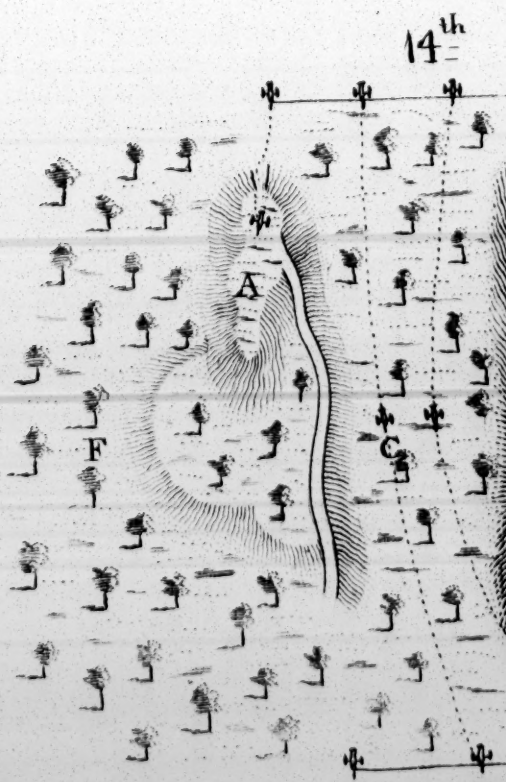 14th
A
F
C